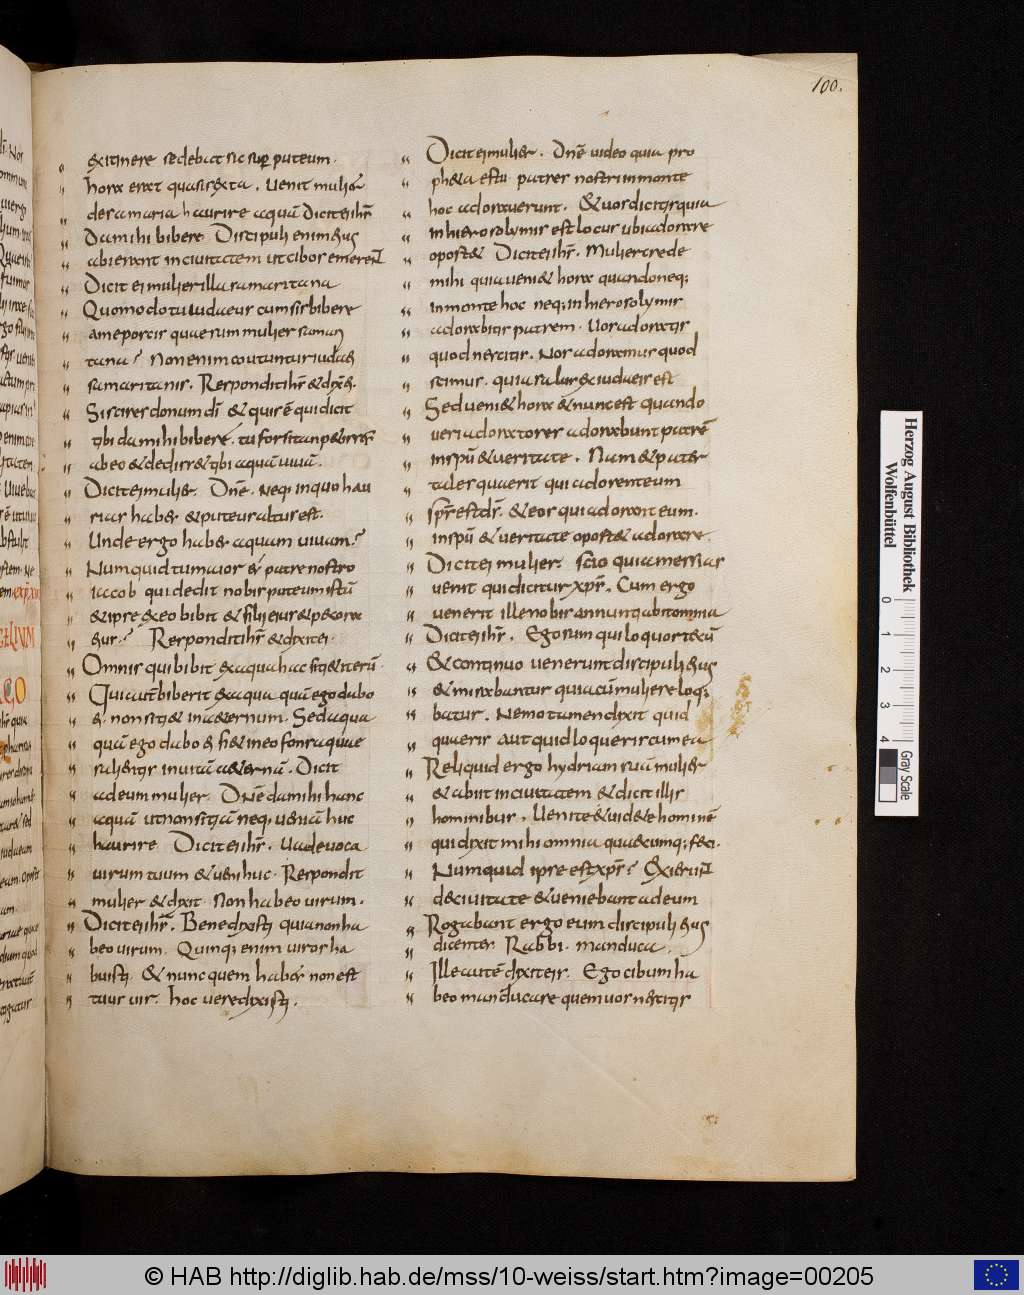 100.
&xitinere sedebat sic sup puteum.
hora erat quasi sexta. Uenit mulier
desamaria haurire aquā Dicit ei ihs̄
Damihi bibere Discipuli enim eius
abierant inciuitatem ut cibos emerent
Dicit ei mulier illa samaritana
Quomodo tu iudaeus cum sis bibere
ame poscis quae sum mulier samari
tana? Non enim coutuntur iudaei
samaritanis. Respondit ihs̄ & dix ei.
Si scires donum dī & quis ē qui dicit
tibi da mihi bibere. tu forsitan p&isses
abeo & dediss& tibi aquā uiuā.
Dicit ei mulier. Dnē. Neq; in quo hau
rias habes. & puteus altus est.
Unde ergo habes aquam uiuam?
Numquid tu maior es patre nostro
iacob qui dedit nobis puteum istū
& ipse & eo bibit & filii eius & pecora
eius? Respondit ihs̄ & dixit ei.
Omnis qui bibit ex aqua hac siti& iterū.
Qui autē biberit ex aqua quā ego dabo
ei. non siti& in aeternum. Sed aqua
quā ego dabo ei fi& in eo fons aquae
salientis inuitā aeternā. Dicit
adeum mulier. Dnē damihi hanc
aquā ut non sitiā neq; ueniā huc
haurire Dicit ei ihs̄. Uade uoca
uirum tuum & ueni huc. Respondit
mulier & dixit. Non habeo uirum.
Dicit ei ihs̄. Bene dixisti quia non ha
beo uirum. Quinq; enim uiros ha
buisti. & nunc quem habes non est
tuus uir. hoc uere dixisti.
Dicit ei mulier. Dnē uideo quia pro
ph&a es tu patres nostri in monte
hoc adorauerunt. & uos dicitis quia
in hierosolymis est locus ubi adorare
oport& Dicit ei ihs̄. Mulier crede
mihi quia ueni& hora quando neq;
in monte hoc neq; in hierosolymis
adorabitis patrem. Uos adoratis
quod nescitis. Nos adoramus quod
scimus. quia salus ex iudaeis est
Sed ueni& hora & nunc est quando
ueri adoratores adorabunt patrē
in spū & ueritate. Nam & pater
tales quaerit qui adorent eum
sps̄ est ds̄. & eos qui adorant eum.
in spū & ueritate oport& adorare
Dicit ei mulier. Scio quia messias
uenit qui dicitur xps̄. Cum ergo
uenerit ille nobis annuntiabit omnia
Dicit ei ihs̄. Ego sum qui loquor tecū
& continuo uenerunt discipuli eius
& mirabantur quia cū muliere loq;
batur. Nemo tamen dixit quid
quaeris aut quid loqueris cum ea
Reliquid ergo hydriam suā mulier
& abiit inciuitatem & dicit illis
hominibus. Uenite & uid&e hominē
qui dixit mihi omnia quaecumq; feci.
Numquid ipse est xps̄? Exierunt
deciuitate & ueniebant adeum
Rogabant ergo eum discipuli eius
dicentes Rabbi. manduca.
Ille autē dixit eis. Ego cibum ha
beo manducare quem uos nescitis
Herzog August Bibliothek
Wolfenbüttel
0 1 2 3 4
Gray Scale
© HAB http://diglib.hab.de/mss/10-weiss/start.htm?image=00205